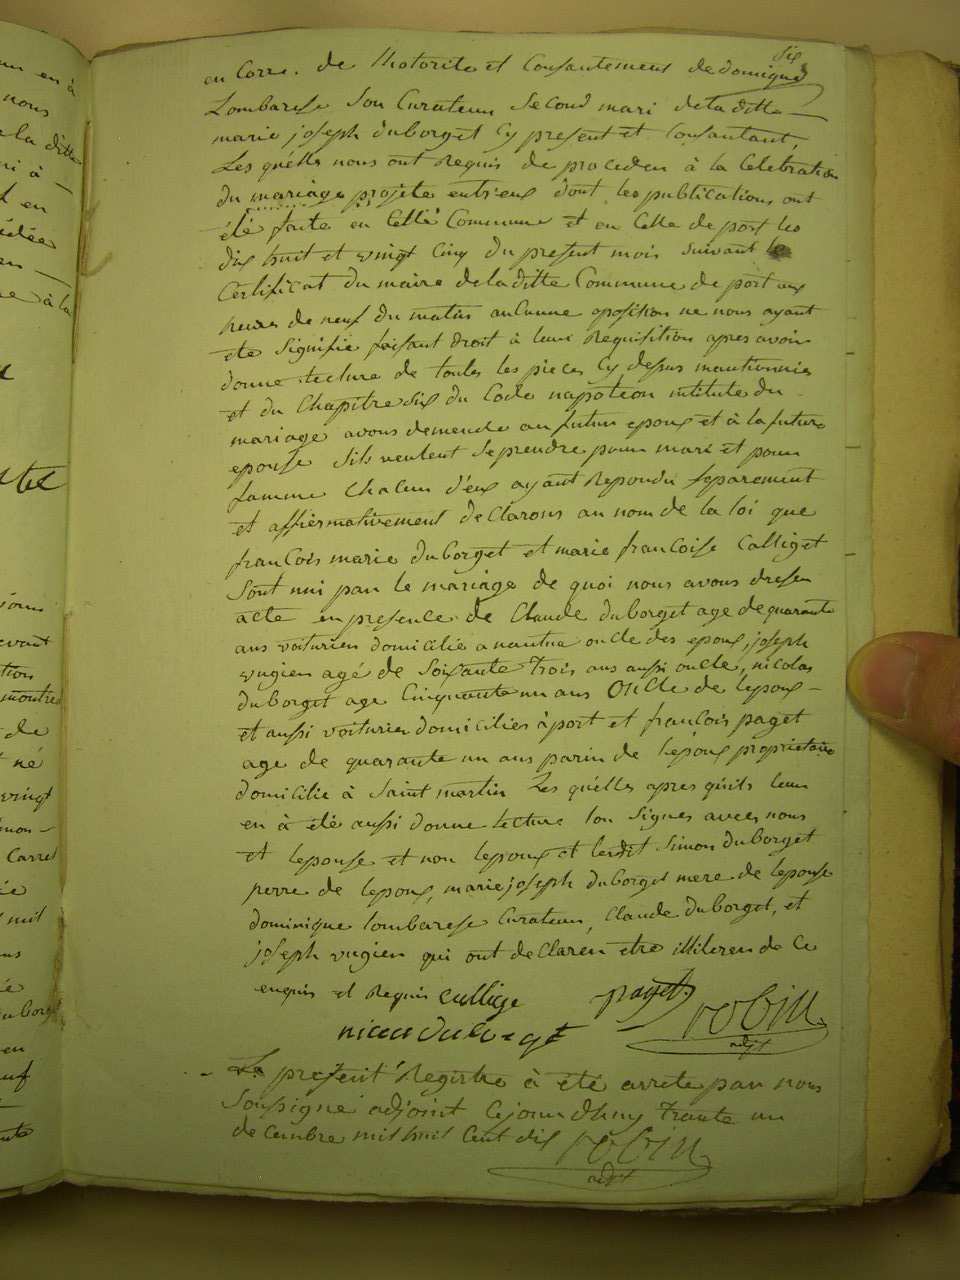 six
en Corre. de Lhotorite et Consantement de domique
Lombarese Son Curateur Second mari de la ditte
marie joseph duborget Cy present et Consantant,
Les quells nous ont Requis de proceder à la Celebration
du mariage projete entreux dont les publications ont
été faite en Cette Commune et en Celle de port les
dix huit et vingt Cinq du present mois suivant le
Certificat du maire de la ditte Commune de port aux
heures de neuf du matin aucunne oposition ne nous ayant
ete Signifie faisant droit à leur Requisition apres avoir
donne lecture de toutes les pieces Cy desus mantionnies
et du Chapitre six du Code napoleon intitute du
mariage avons demende au futur epoux et à la future
epouse Sils veulent Se prendre pour mari et pour
famme Chacun d'eux ayant Repondu separement
et affirmativement declarons au nom de la loi que
francois marie duborget et marie francoise Calliget
Sont uni par le mariage de quoi nous avons dresse
acte en presence de Claude duborget age de quarante
ans voiturier domicilie a nantua oncle des epoux, joseph
vugien agé de Soixante trois ans aussi oncle, nicolas
duborget age Cinquante un ans Oncle de lepoux
et aussi voiturier domicilies à port et francois paget
age de quarante un ans parin de l'epoux proprietaire
domicilie à Saint martin Les quells apres quils leur
en à été aussi donne lecture lon Signes avec nous
et lepouse et non lepoux et ledit Simon duborget
perre de lepoux, marie joseph duborget mere de lepouse
dominique lombarese Curateur, Claude duborget, et
joseph vugien qui ont declaren etre illiteren de Ce
enquis et Requis Callige paget robin
nicolas duborget adjt
Le present Registre à été arrete par nous
Soussigne adjoint Cejourdhuy trante un
decembre mil huit Cent dix robin
adjt